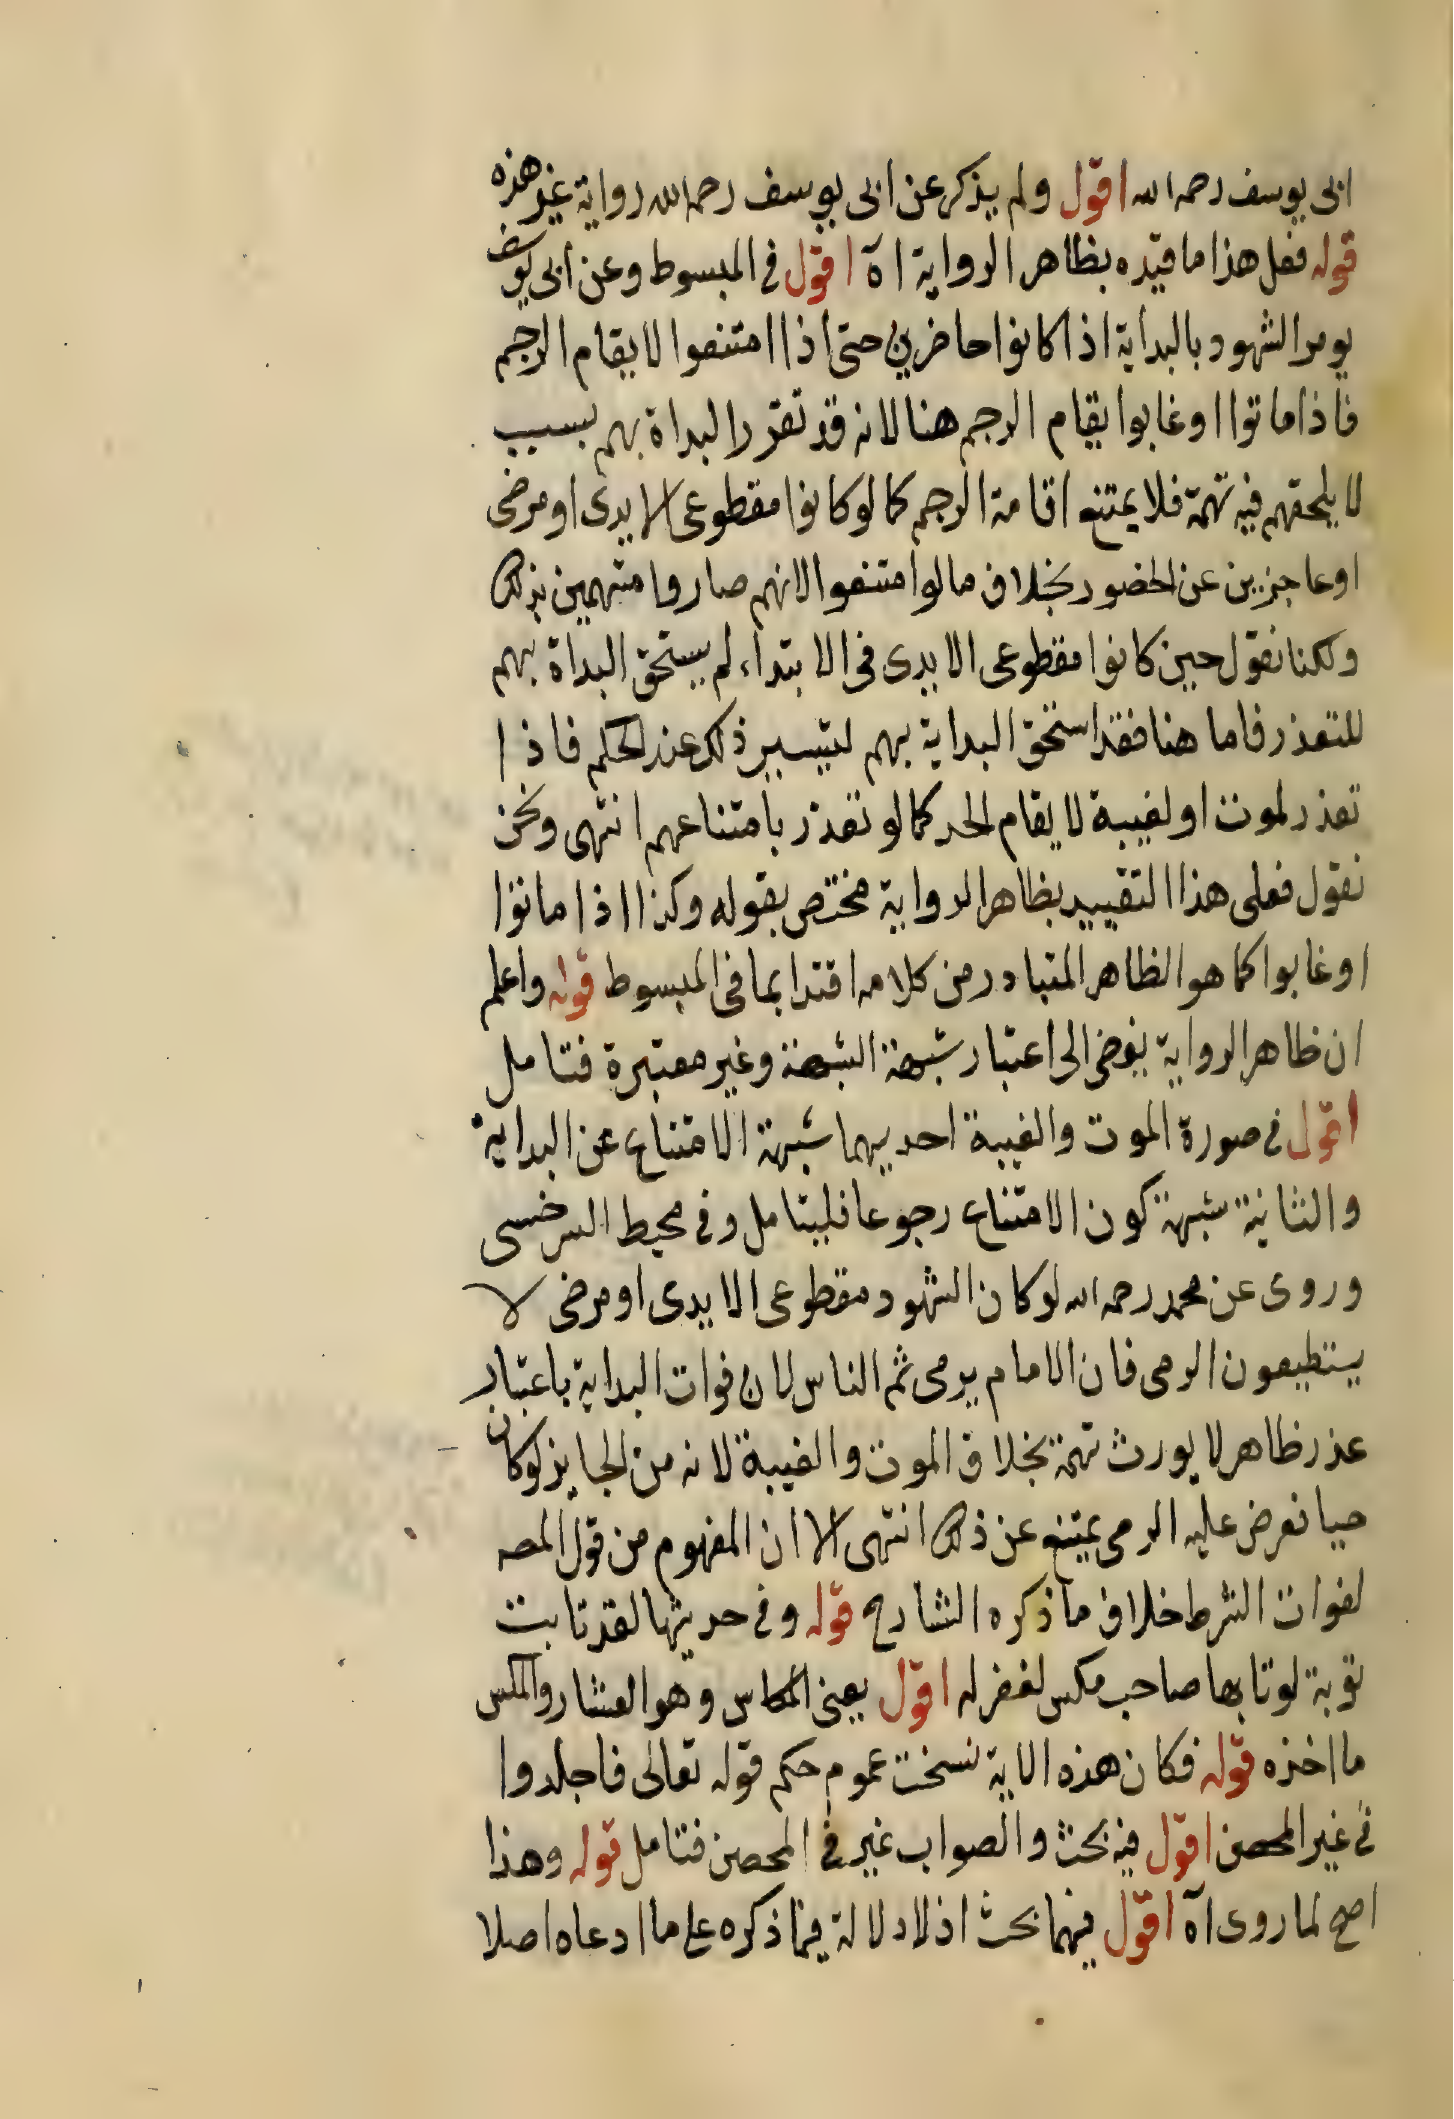 ابى يوسف رحمه الله اقول ولم يذكر عن ابى يوسف رحمه الله رواية غير هذه
قوله فعل هذا ما قيده بظاهر الرواية اه اقول فى المبسوط وعن ابى يوسف
يومر الشهود بالبداية اذا كانوا حاضرين حتى اذا امتنعوا لا يقام الرجم
فاذا ماتوا او غابوا يقام الرجم هنا لانه قد تقرر البداة بهم بسبب
لا يلحقهم فيه تهمة فلا يمتنع اقامة الرجم كما لو كانوا مقطوعى الايدى او مرضى
او عاجزين عن الحضور بخلاف ما لو امتنعوا لانهم صاروا متهمين بذلك
ولكنا نقول حين كانوا مقطوعى الايدى فى الابتداء لم يستحق البداة بهم
للتعذر فاما هنا فقد استحق البداية بهم لتيسير ذلك عند الحكم فاذا
تعذر لموت او لغيبة لا يقام الحد كما لو تعذر بامتناعهم انتهى ونحن
نقول فعلى هذا التقييد بظاهر الرواية مختص بقوله وكذا اذا ماتوا
او غابوا كما هو الظاهر المتبادر من كلامه اقتدا بما فى المبسوط قوله واعلم
ان ظاهر الرواية يفضى الى اعتبار شبهة الشبهة وغير معتبرة فتامل
اقول فى صورة الموت والغيبة احديهما شبهة الامتناع عن البداية
والثانية شبهة كون الامتناع رجوعا فليتامل وفى محيط السرخسى
وروى عن محمد رحمه الله لو كان الشهود مقطوعى الايدى او مرضى لا
يستطيعون الرمى فان الامام يرمى ثم الناس لان فوات البداية باعتبار
عذر ظاهر لا يورث تهمة بخلاف الموت والغيبة لانه من الجايز لو كان
حيا فعرض عليه الرمى يمتنع عن ذلك انتهى الا ان المفهوم من قول المصه
لفوات الشرط خلاف ما ذكره الشارح قوله وفى حديثها لقد تابت
توبة لو تابها صاحب مكس لغفر له اقول يعنى المكاس وهو العشار والمكس
ما اخذه قوله فكان هذه الاية نسخت عموم حكم قوله تعالى فاجلدوا
فى غير المحصن اقول فيه بحث والصواب غير فى المحصن فتامل قوله وهذا
اصح لما روى اه اقول فيهما بحث اذ لا دلالة فيما ذكره على ما ادعاه اصلا